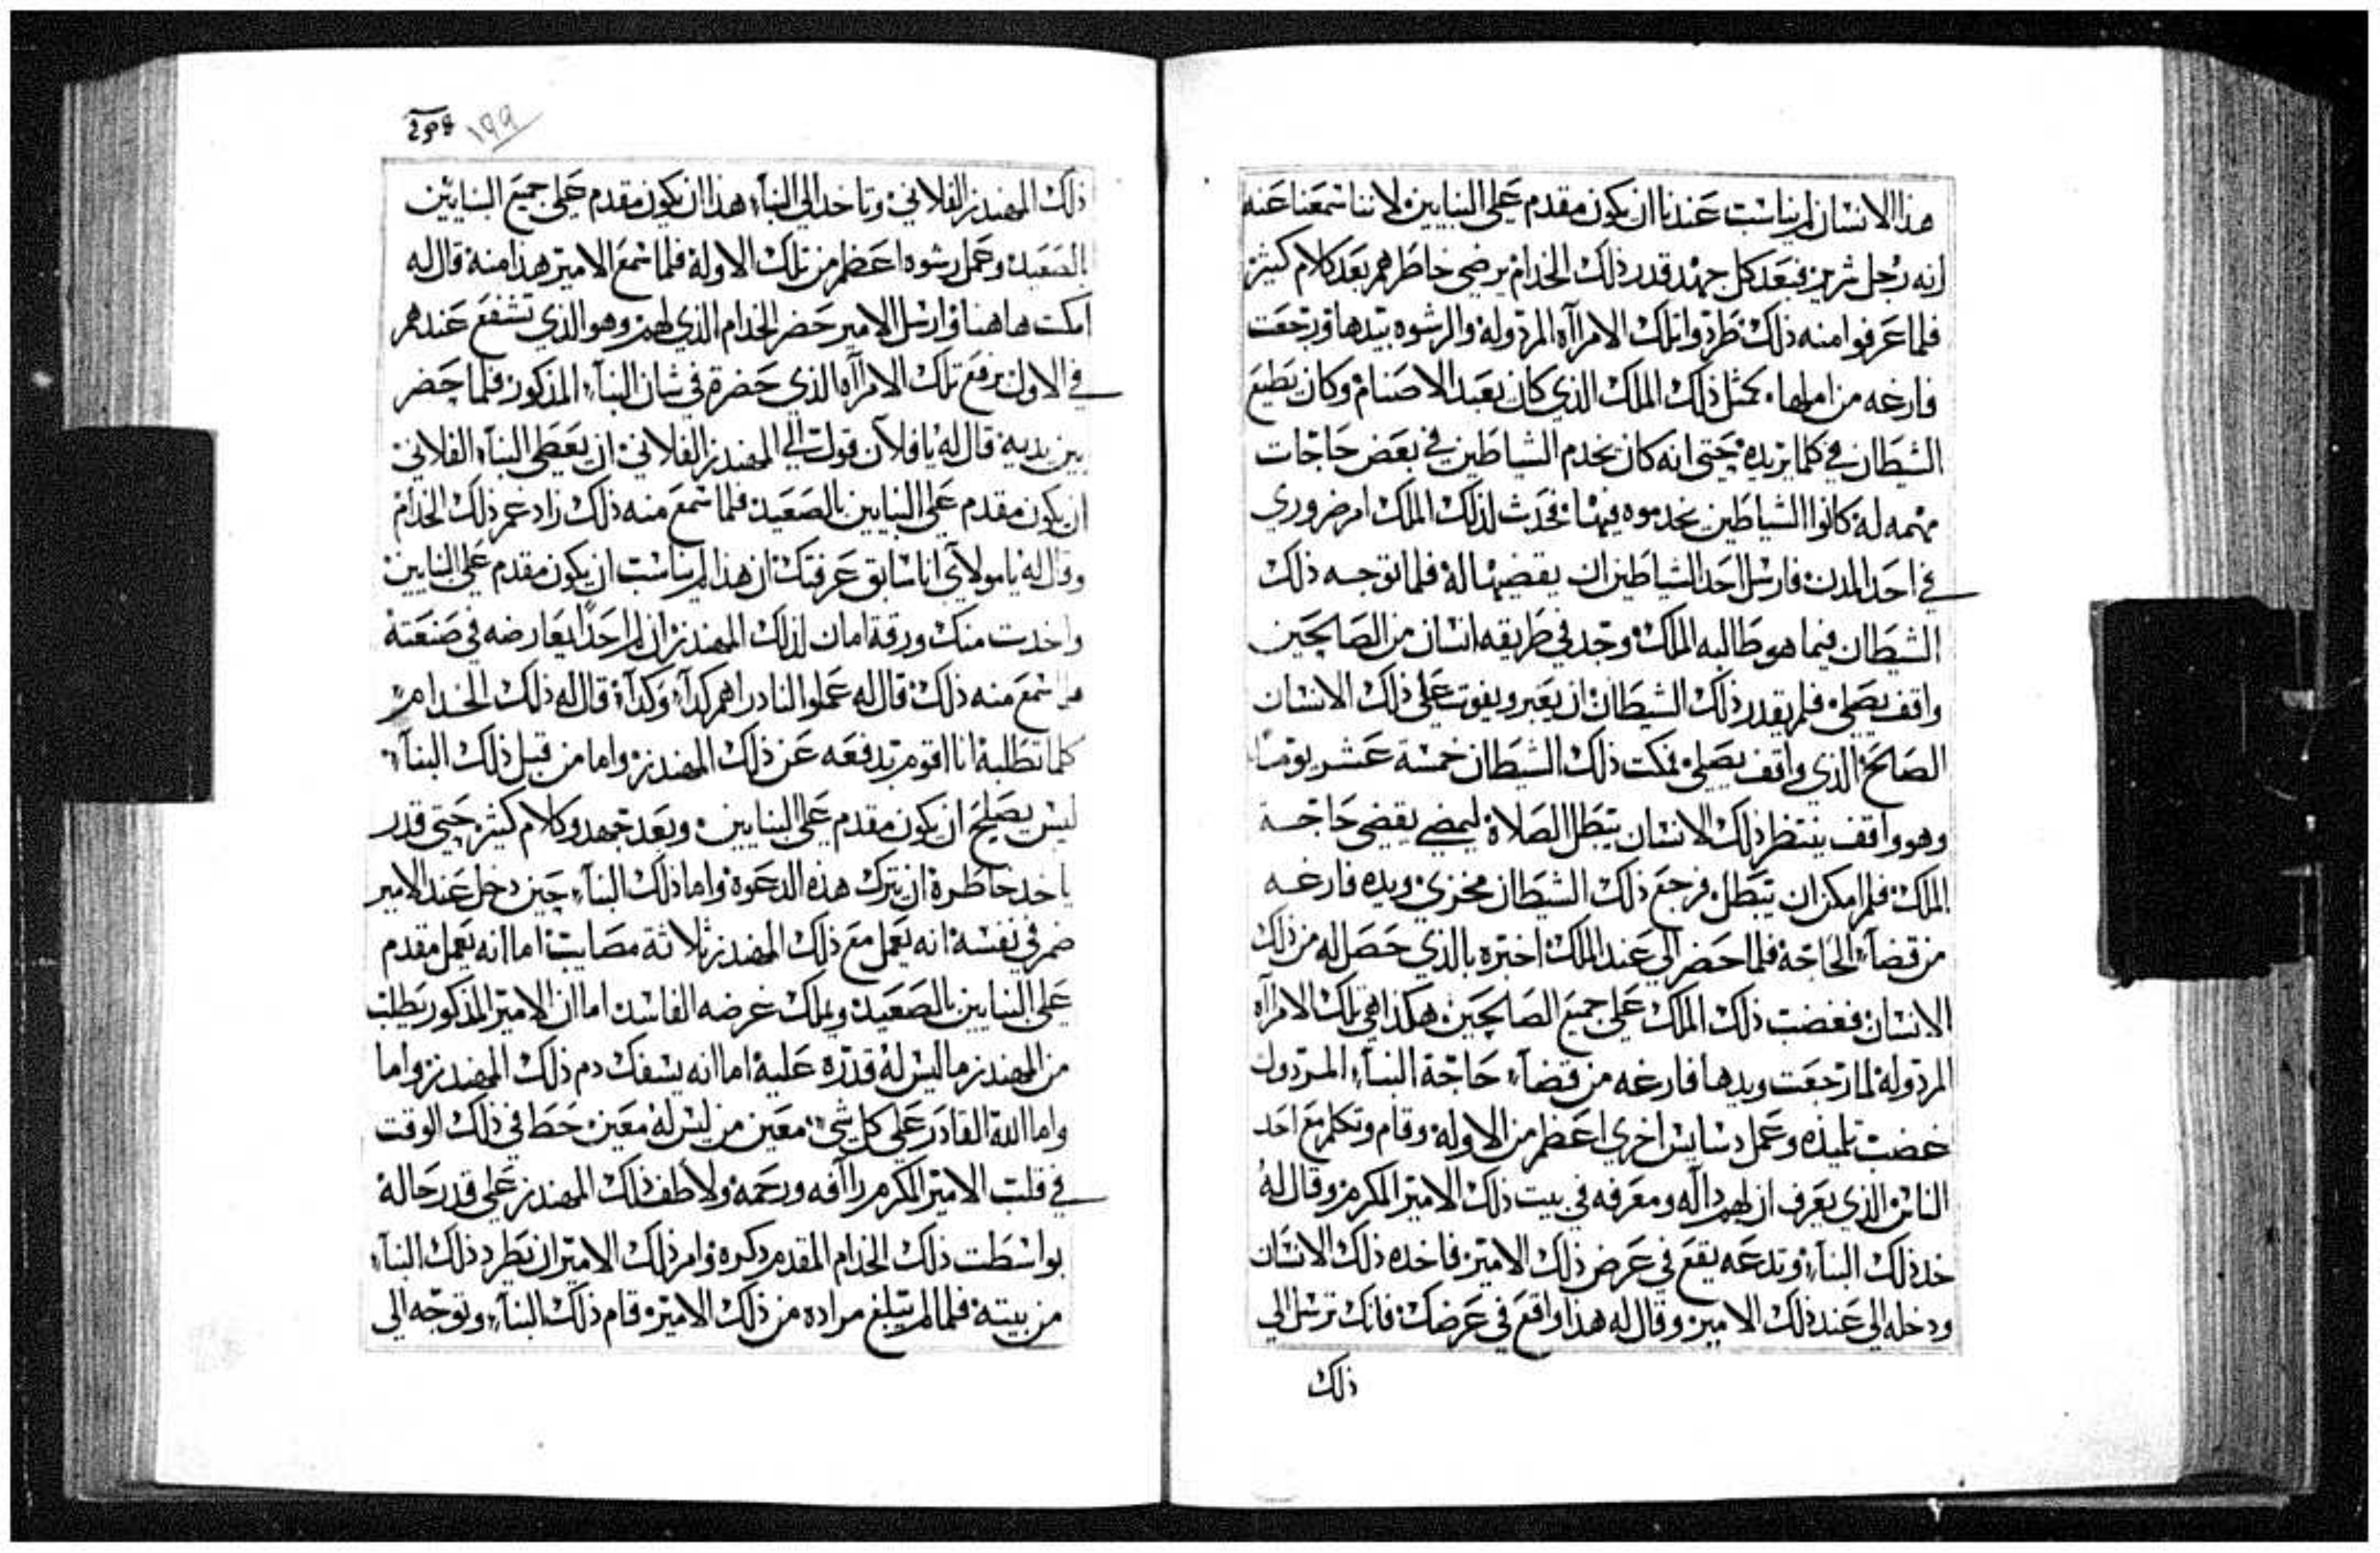 هذا الانسان لم يناسب عندنا ان يكون مقدم علي البنايين لاننا سمعنا عنه
انه رجل شرير فبعد كل جهد قدر ذلك الخدام يرضي خاطرهم بعد كلام كثير
فلما عرفوا منه ذلك طردوا تلك الامرآاه المردوله والرشوه بيدها ورجعت
فارغه من املها. كمثل ذلك الملك الذي كان يعبد الاصنام وكان يطيع
الشيطان في كلما يريده حتي انه كان يخدم الشياطين في بعض حاجات
مهمه له كانوا الشياطين يخدموه فيها فحدث لذلك الملك امر ضروري
في احد المدن فارسل احد الشياطين ان يقضيها له فلما توجه ذلك
الشيطان فيما هو طالبه الملك وجد في طريقه انسان من الصالحين
واقف يصلي فلم يقدر ذلك الشيطان ان يعبر ويفوت علي ذلك الانسان
الصالح الذي واقف يصلي فمكت ذلك الشيطان خمسة عشر يوماً
وهو واقف ينتظر ذلك الانسان يبطل الصلاة ليمضي يقضي حاجة
الملك فلم امكن ان يبطل فرجع ذلك الشيطان مخزي ويده فارغه
من قضآء الحاجة فلما حضر الي عند الملك اخبره بالذي حصل له من ذلك
الانسان فغضب ذلك الملك علي جميع الصالحين هكذا هي تلك الامرآاه
المردوله لما رجعت ويدها فارغه من قضآء حاجة البنآء المردول
غضب تلميذه وعمل دسايس اخري اعظم من الاوله وقام وتكلم مع احد
الناس الذي يعرف ان لهم داله ومعرفه في بيت ذلك الامير المكرم وقال له
خد ذلك البنآء وتدعه يقع في عرض ذلك الامير فاخده ذلك الانسان
ودخله الي عند ذلك الامير وقال له هذا واقع في عرضك فانك ترسل الي
ذلك
١٩٩
ذلك المهندز الفلاني وتاخد الي البنآء هذا ان يكون مقدم علي جميع البنايين
بالصعيد وعمل رشوه اعظم من تلك الاوله فلما سمع الامير هذا منه قال له
امكت هاهنا وارسل الامير حضر الخدام الذي لهم وهو الذي تشفع عندهم
في الاول برفع تلك الامرآاه الذي حضرة في شان البنآء المذكور فلما حضر
بين يديه قال له يا فلآن قول الي المهندز الفلاني ان يعطي البنآء الفلاني
ان يكون مقدم علي البنايين بالصعيد فلما سمع منه ذلك زاد غم ذلك الخدام
وقال له يا مولآي انا سابق عرفتك ان هذا لم يناسب ان يكون مقدم علي البنايين
واخدت منك ورقة امان لذلك المهندز ان لم احداً يعارضه في صنعته
فلما سمع منه ذلك قال له عملوا لنا دراهم كدآء وكدآء قال له ذلك الخدام
كلما تطلبه انا اقوم بدفعه عن ذلك المهندز واما من قبل ذلك البنآء
ليس يصلح ان يكون مقدم علي البنايين وبعد جهد وكلام كثير حتي قدر
ياخد خاطره ان يترك هذه الدعوة واما ذلك البنآء حين دخل عند الامير
ضمر في نفسه انه يعمل مع ذلك المهندز ثلاثة مصايب اما انه يعمل مقدم
علي البنايين بالصعيد ويملك غرضه الفاسد اما ان الامير المذكور يطلب
من المهندز ما ليس له قدره عليه اما انه يسفك دم ذلك المهندز واما
واما الله القادر علي كل شي معين من ليس له معين حط في ذلك الوقت
في قلب الامير المكرم رآافه ورحمه ولاطف ذلك المهندز علي قدر حاله
بواسطت ذلك الخدام المقدم دكره وامر ذلك الامير ان يطرد ذلك البنآء
من بيته فلما لم يبلغ مراده من ذلك الامير قام ذلك البنآء وتوجه الي